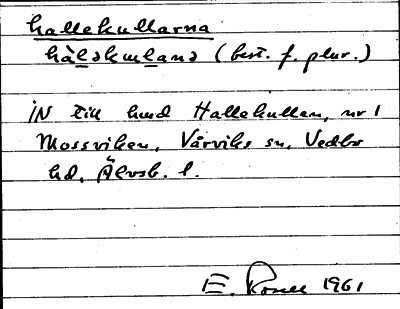 hallekullarna
hàləkulana (best. f. plur.)
IN till hmd Hallekullen, nr 1
Mossviken, Vårviks sn, Vedbo
hd, Älvsb. l.
E. 1961